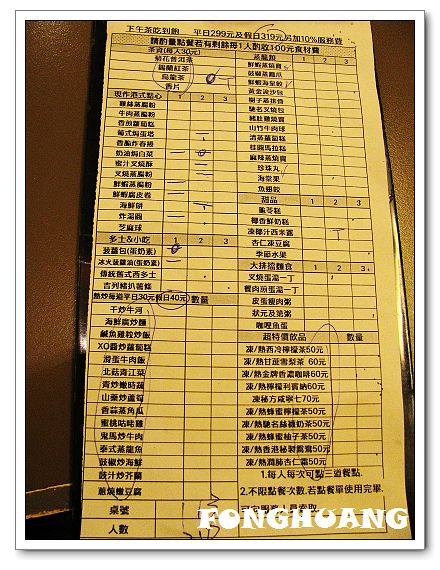 下午茶吃到飽 平日299元及假日319元另加10%服務費
請酌量點餐若有剩餘每1人酌收100元食材費
茶資(每人30元)
菊花普洱茶
錫蘭紅茶
烏龍茶
香片
現作港式點心 1 2 3
雞絲蒸腸粉
牛肉蒸腸粉
香煎蘿蔔糕
葡式焗蛋塔
香脆炸春捲
奶油焗白菜
蜜汁叉燒酥
叉燒蒸腸粉
鮮蝦蒸腸粉
鮮蝦腐皮卷
海鮮餅
炸湯圓
芝麻球
多士&小吃 1 2 3
菠蘿包(蛋奶素)
冰火菠蘿油(蛋奶素)
傳統舊式西多士
吉列豬扒薯條
熱炒每道平日30元假日40元 數量
干炒牛河
海鮮腐炒麵
鹹魚雞粒炒飯
XO醬炒蘿蔔糕
滑蛋牛肉飯
北菇青江菜
青炒嫩時蔬
山藥炒蘆筍
香蒜蒸角瓜
蜜桃咕咾雞
鬼馬炒牛肉
泰式蒸龍魚
豉椒炒海鮮
豉汁炒芥蘭
蔥燒嫩豆腐
桌號
人數
蒸籠類 1 2 3
鮮蝦蒸燒賣
豉汁蒸鳳爪
鮮蝦海皇餃
黃金流沙包
樹子蒸排骨
馳名叉燒包
豬肚雞燒賣
山竹牛肉球
清蒸蘿蔔糕
桂圓馬拉糕
麻辣蒸燒賣
珍珠丸
海棠果
魚翅餃
甜品 1 2 3
龜苓糕
椰香鮮奶糕
凍椰汁西米露
杏仁凍豆腐
季節水果
大排擋麵食 1 2 3
叉燒蛋湯一丁
餐肉煎蛋湯一丁
皮蛋瘦肉粥
狀元及第粥
咖哩魚蛋
超特價飲品 數量
凍/熱西冷檸檬茶50元
凍/熱甘蔗雪梨茶 60元
凍/熱金牌香濃咖啡60元
凍/熱檸檬利賓納60元
凍秘方咸寧七70元
凍/熱蜂蜜檸檬茶50元
凍/熱馳名絲襪奶茶50元
凍/熱蜂蜜柚子茶50元
凍/熱香港秘製鴛鴦50元
凍/熱潤肺杏仁霜50元
1.每人每次可點三道餐點.
2.不限點餐次數.若點餐單使用完畢.
可向服務人員索取
FONGHUANG